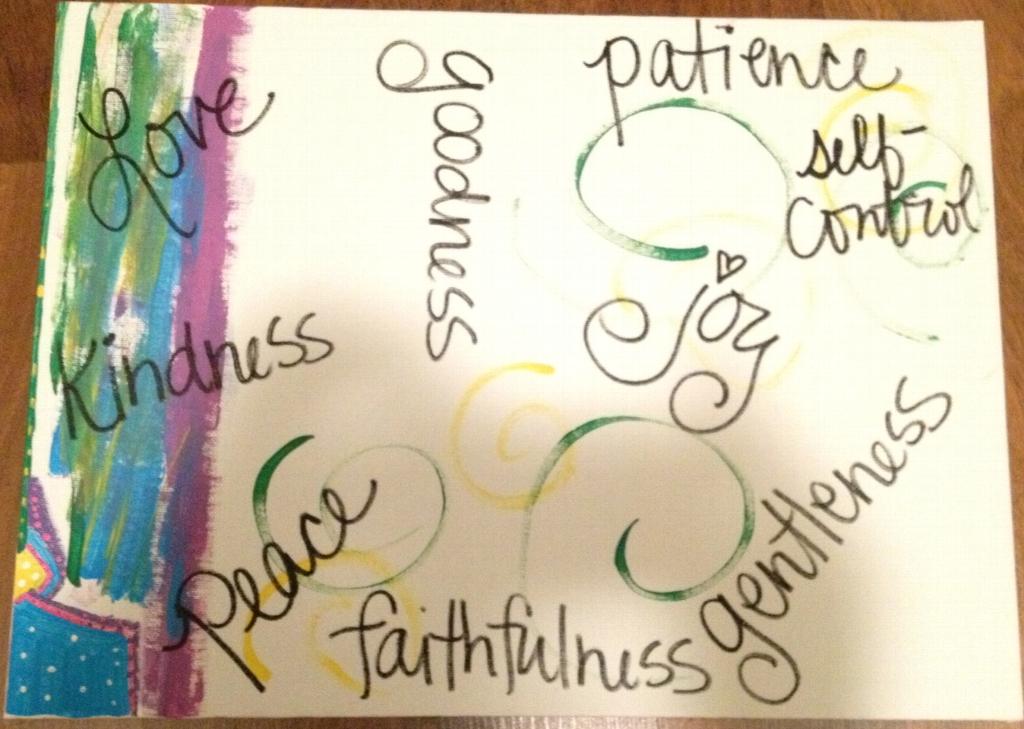 Love
goodness
patience
self-
control
Joy
Kindness
peace
faithfulness
gentleness